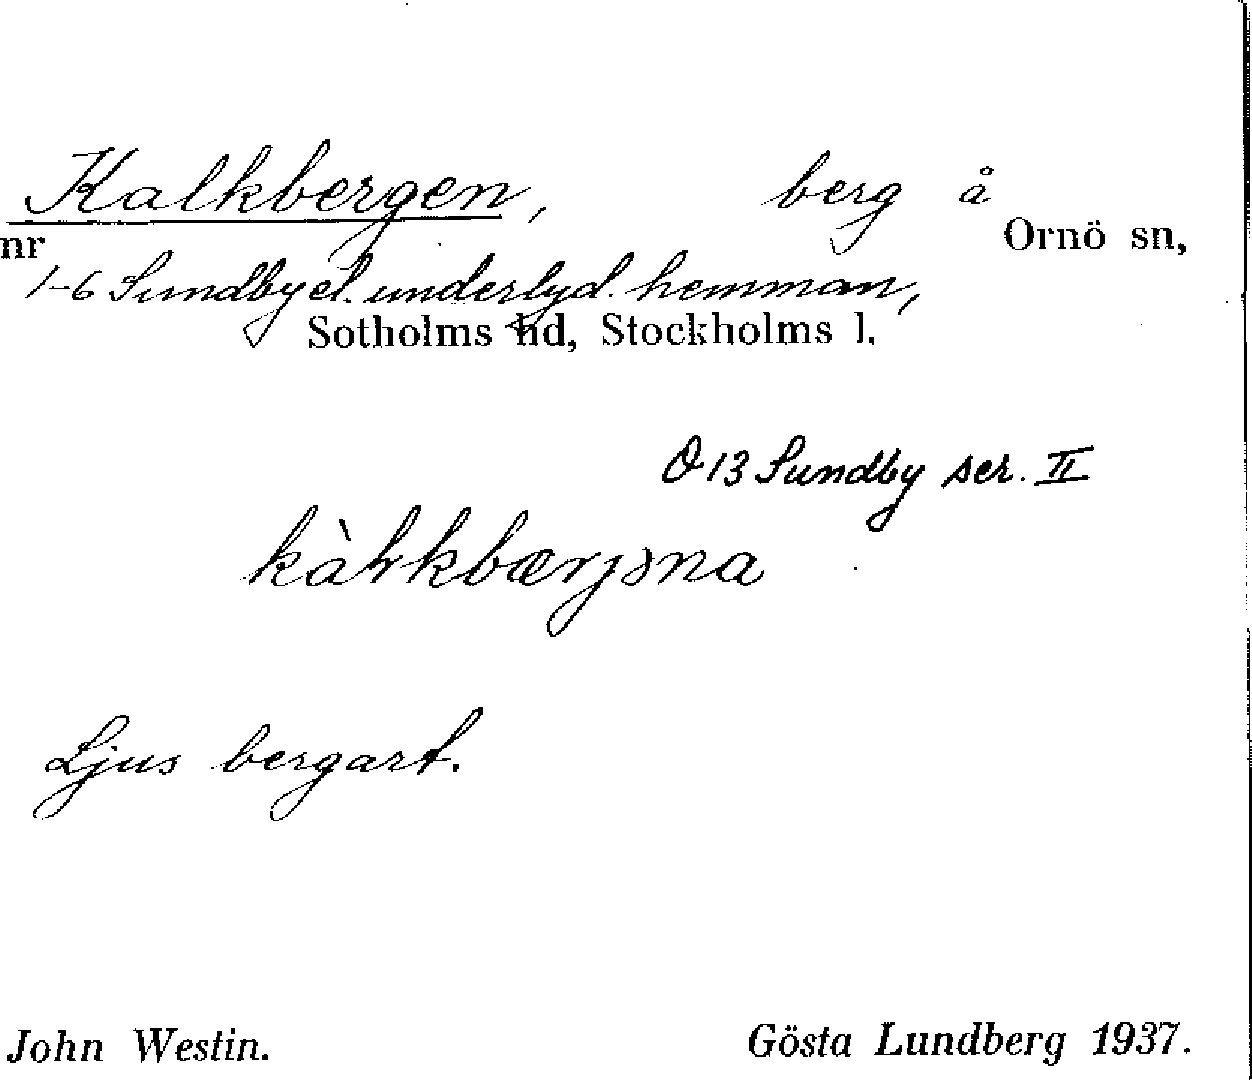 Kalkbergen, berg å
nr Ornö sn,
1-6 Sundby el. underlyd. hemman,
Sotholms hd, Stockholms l.
O 13 Sundby ser. II
Ljus bergart.
John Westin. Gösta Lundberg 1937.